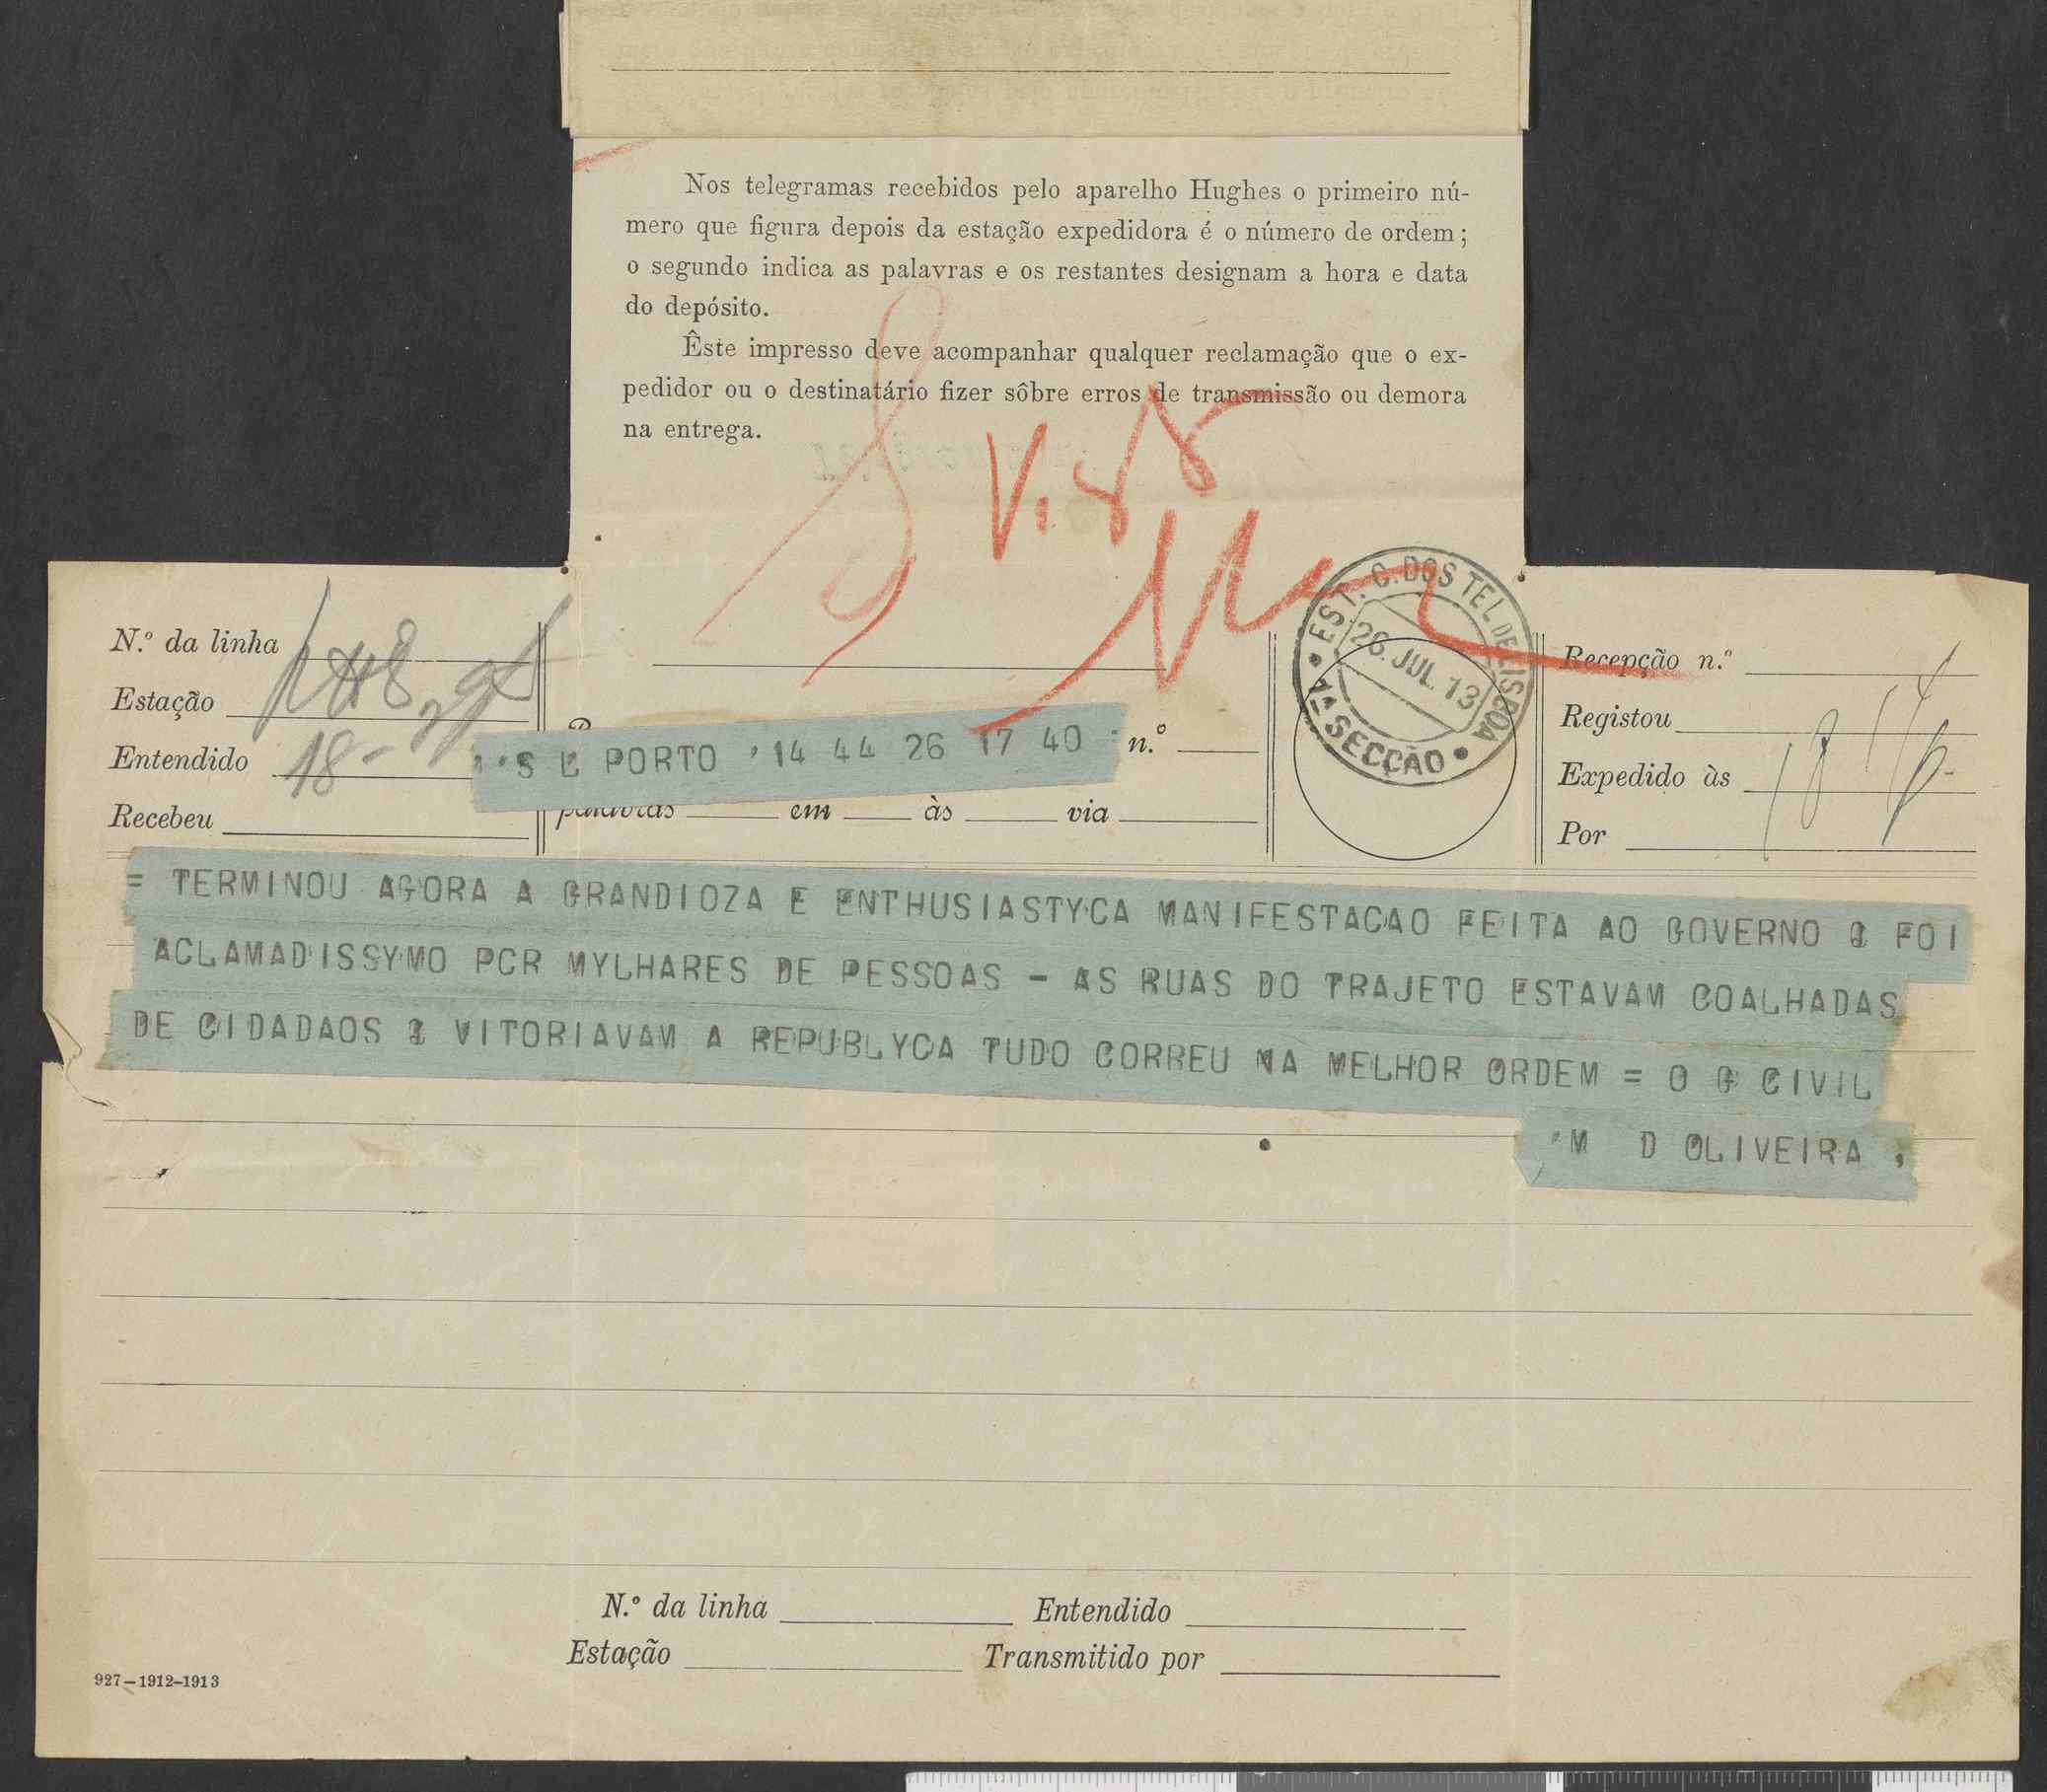 Nos telegramas recebidos pelo aparelho Hughes o primeiro nú-
mero que figura depois da estação expedidora é o número de ordem;
o segundo indica as palavras e os restantes designam a hora e data
do depósito.
Êste impresso deve acompanhar qualquer reclamação que o ex-
pedidor ou o destinatário fizer sôbre erros de transmissão ou demora
na entrega.
EST. C. DOS TEL. DE LISBOA
26. JUL. 13
1ª SECÇÃO
N.º da linha
Estação
Entendido 18-
Recebeu
S L PORTO 14 44 26 17 40 n.º
palavras em às via
Recepção n.º
Registou
Expedido às
Por
= TERMINOU AGORA A GRANDIOZA E ENTHUSIASTYCA MANIFESTACAO FEITA AO GOVERNO Q FOI
ACLAMADISSYMO PCR MYLHARES DE PESSOAS - AS RUAS DO TRAJETO ESTAVAM COALHADAS
DE CIDADAOS Q VITORIAVAM A REPUBLYCA TUDO CORREU NA MELHOR ORDEM = O G CIVIL
M D OLIVEIRA ,
N.º da linha Entendido
Estação Transmitido por
927-1912-1913